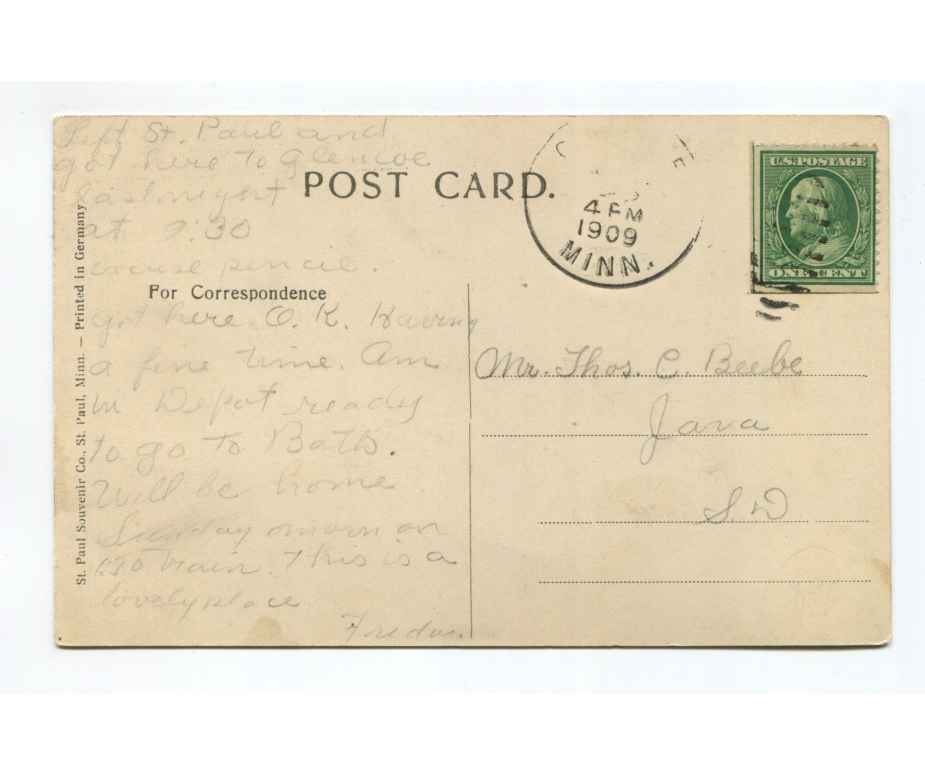 Left St. Paul and
got here to Glencoe
last night
at 9:30
excuse pencil.
POST CARD.
For Correspondence
got here O.K. Having
a fine time. Am
in Depot ready
to go to Bath.
Will be home
Sunday on
train. This is a
lovely place
St. Paul Souvenir Co., St. Paul, Minn. – Printed in Germany
4 PM
1909
MINN.
U.S. POSTAGE
ONE CENT
Mr. Thos. C. Beebe
Java
S.D